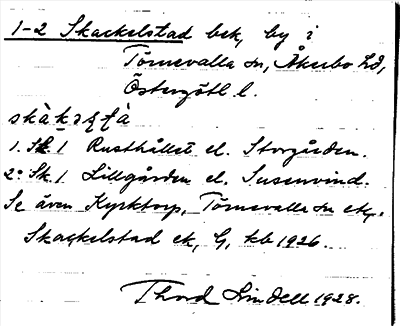 1-2 Skackelstad bek, by i
Törnevalla sn, Åkerbo hd,
Östergötl l.
skàkəʂʈà
1. Sk. 1 Rusthållet el. Storgården.
2. Sk. 1 Lillgården el. Susenvind.
Se även Kyrktorp, Törnevalla sn
Skackelstad ek, G, kb 1926.
Thord Lindell 1928.